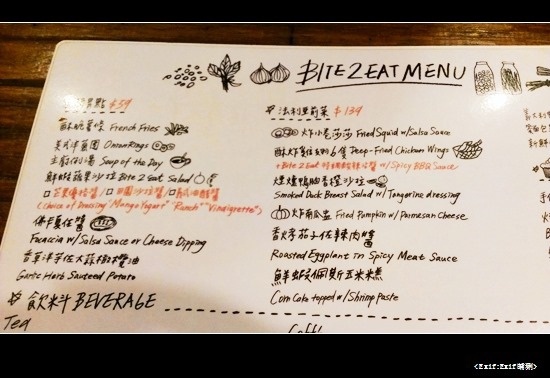 BITE 2 EAT MENU
點 $59
酥脆薯條 French Fries
美式洋蔥圈 Onion Rings
主廚例湯 Soup of the Day
鮮甜蔬果沙拉 Bite 2 Eat Salad
(Choice of Dressing "Mango Yogurt" "Ranch" "Vinaigrette")
佛卡夏佐醬
Focaccia w/ Salsa Sauce or Cheese Dipping
香草洋芋佐大蒜橄欖油
Garlic Herb Sauteed Potato
飲料 BEVERAGE
Tea
法利里前菜 $139
炸小卷莎莎 Fried Squid w/ Salsa Sauce
6隻 Deep-Fried Chicken Wings
+ Bite 2 Eat w/ Spicy BBQ Sauce
煙燻鴨胸香橙沙拉
Smoked Duck Breast Salad w/ Tangerine dressing
炸南瓜 Fried Pumpkin w/ Parmesan Cheese
香烤茄子佐辣肉醬
Roasted Eggplant in Spicy Meat Sauce
鮮蝦佩斯玉米糕
Corn Cake topped w/ Shrimp Paste
<Exif:Exif晴測>